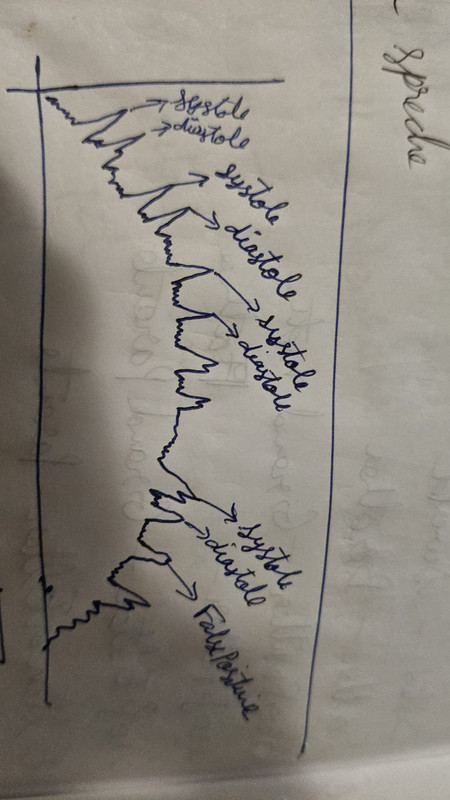 spreche
systole
diastole
systole
diastole
systole
diastole
systole
diastole
False Positive